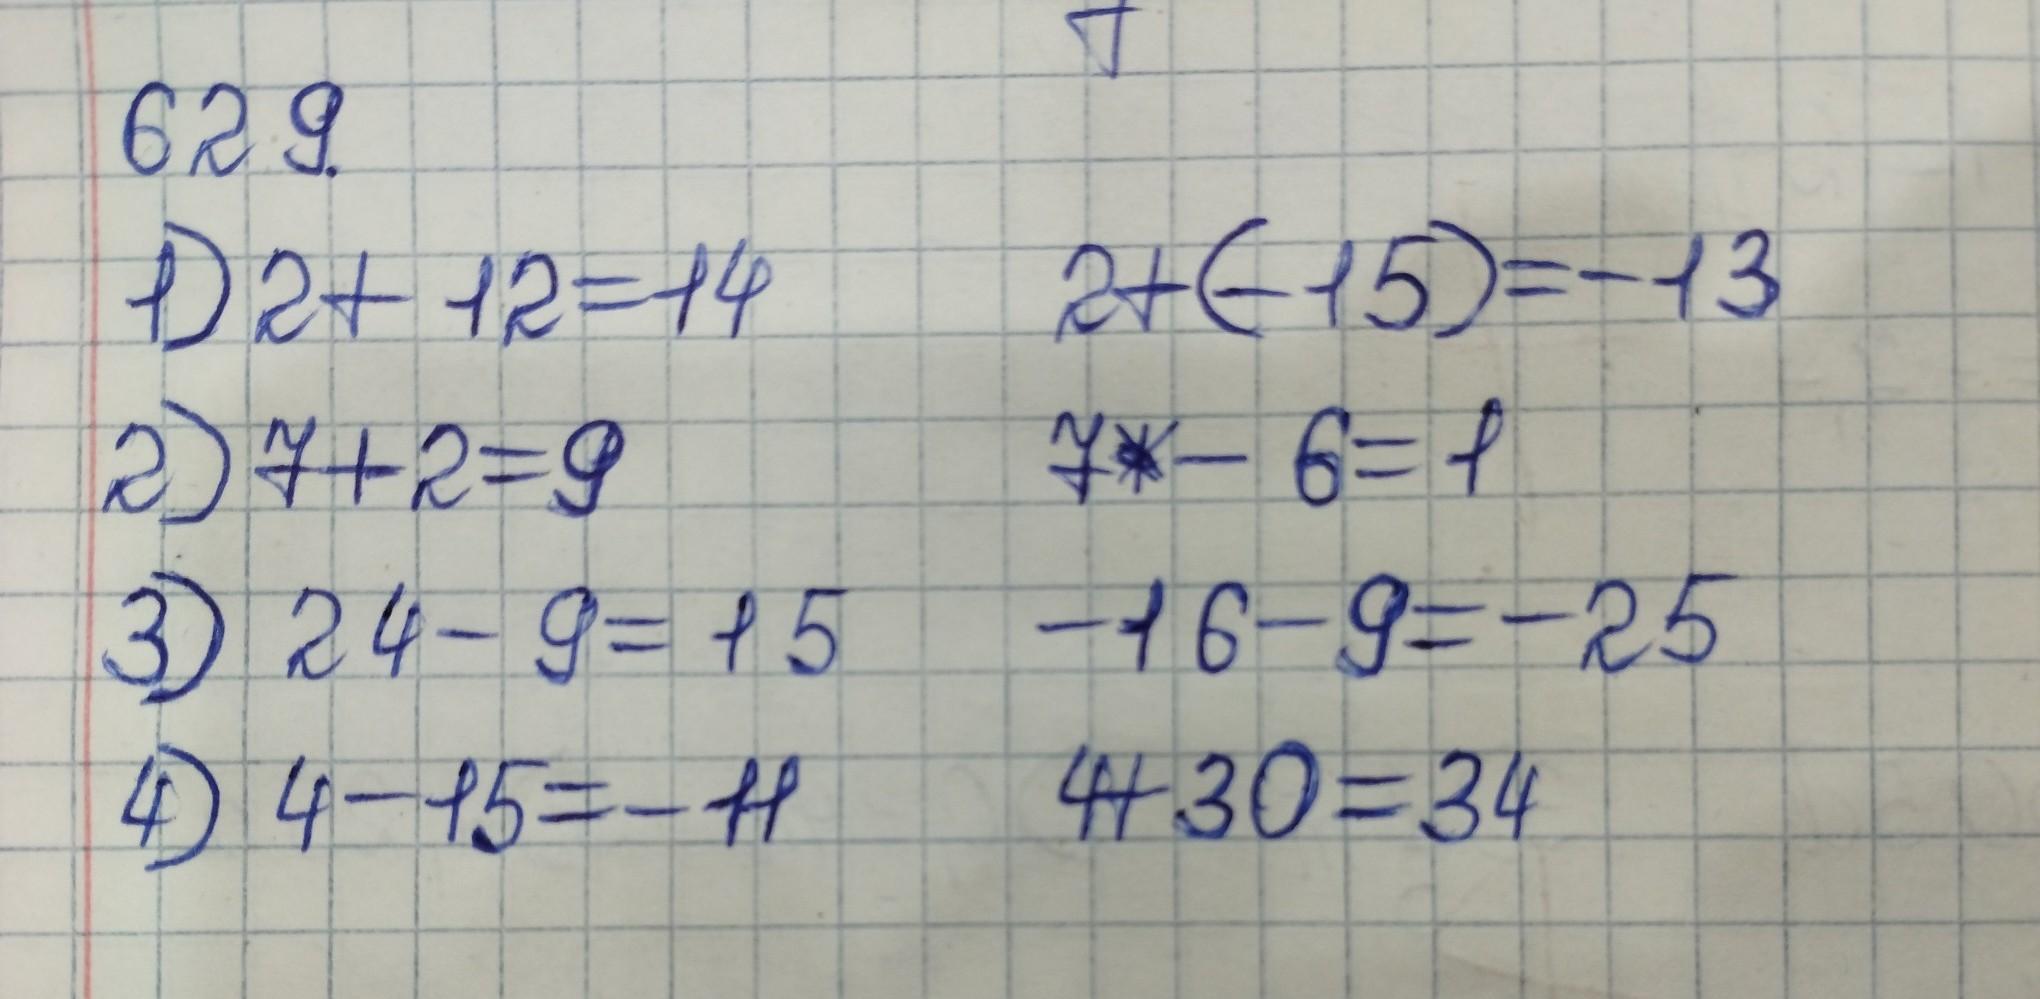 629.
1) 2+ 12=14 2+(-15)=-13
2) 7+2=9 7- 6=1
3) 24- 9=15 -16-9=-25
4) 4-15=-11 4+30=34